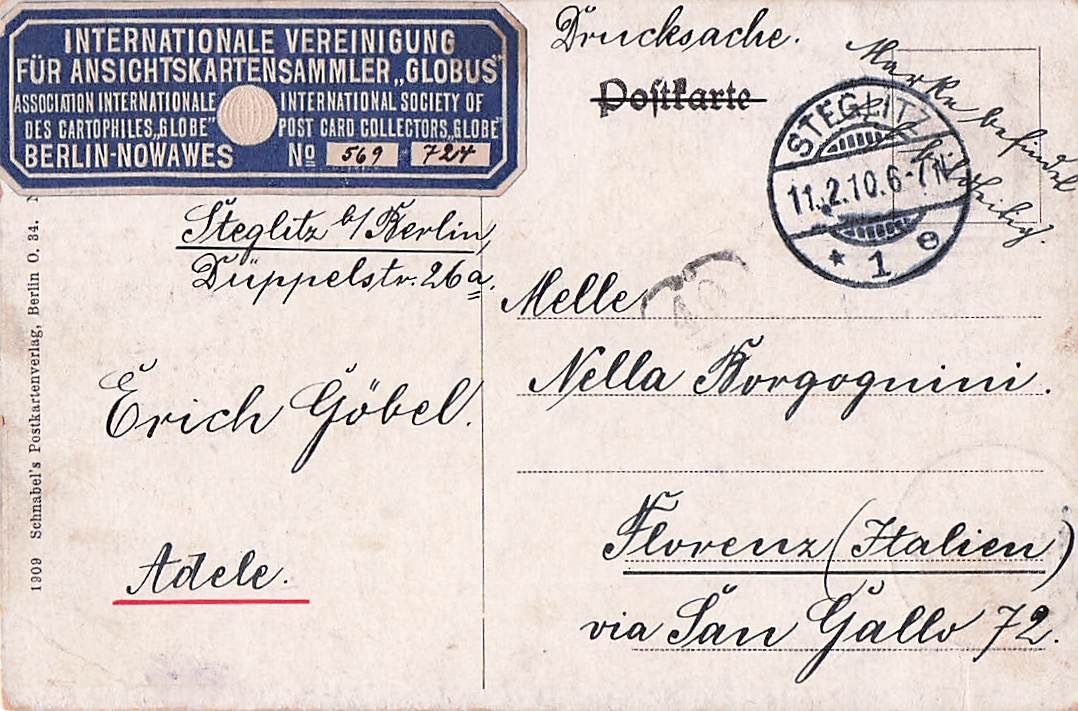 INTERNATIONALE VEREINIGUNG
FÜR ANSICHTSKARTENSAMMLER „GLOBUS"
ASSOCIATION INTERNATIONALE
DES CARTOPHILES „GLOBE"
INTERNATIONAL SOCIETY OF
POST CARD COLLECTORS „GLOBE"
BERLIN-NOWAWES No 569 724
Drucksache.
Postkarte
Marke befindet
STEGLITZ
11.2.10.6-7N
* 1 e
Steglitz b/Berlin,
Düppelstr. 26a.
Erich Göbel.
Adele.
Melle
Nella Borgognini.
Florenz (Italien)
via San Gallo 72.
1909 Schnabel's Postkartenverlag, Berlin O. 34.